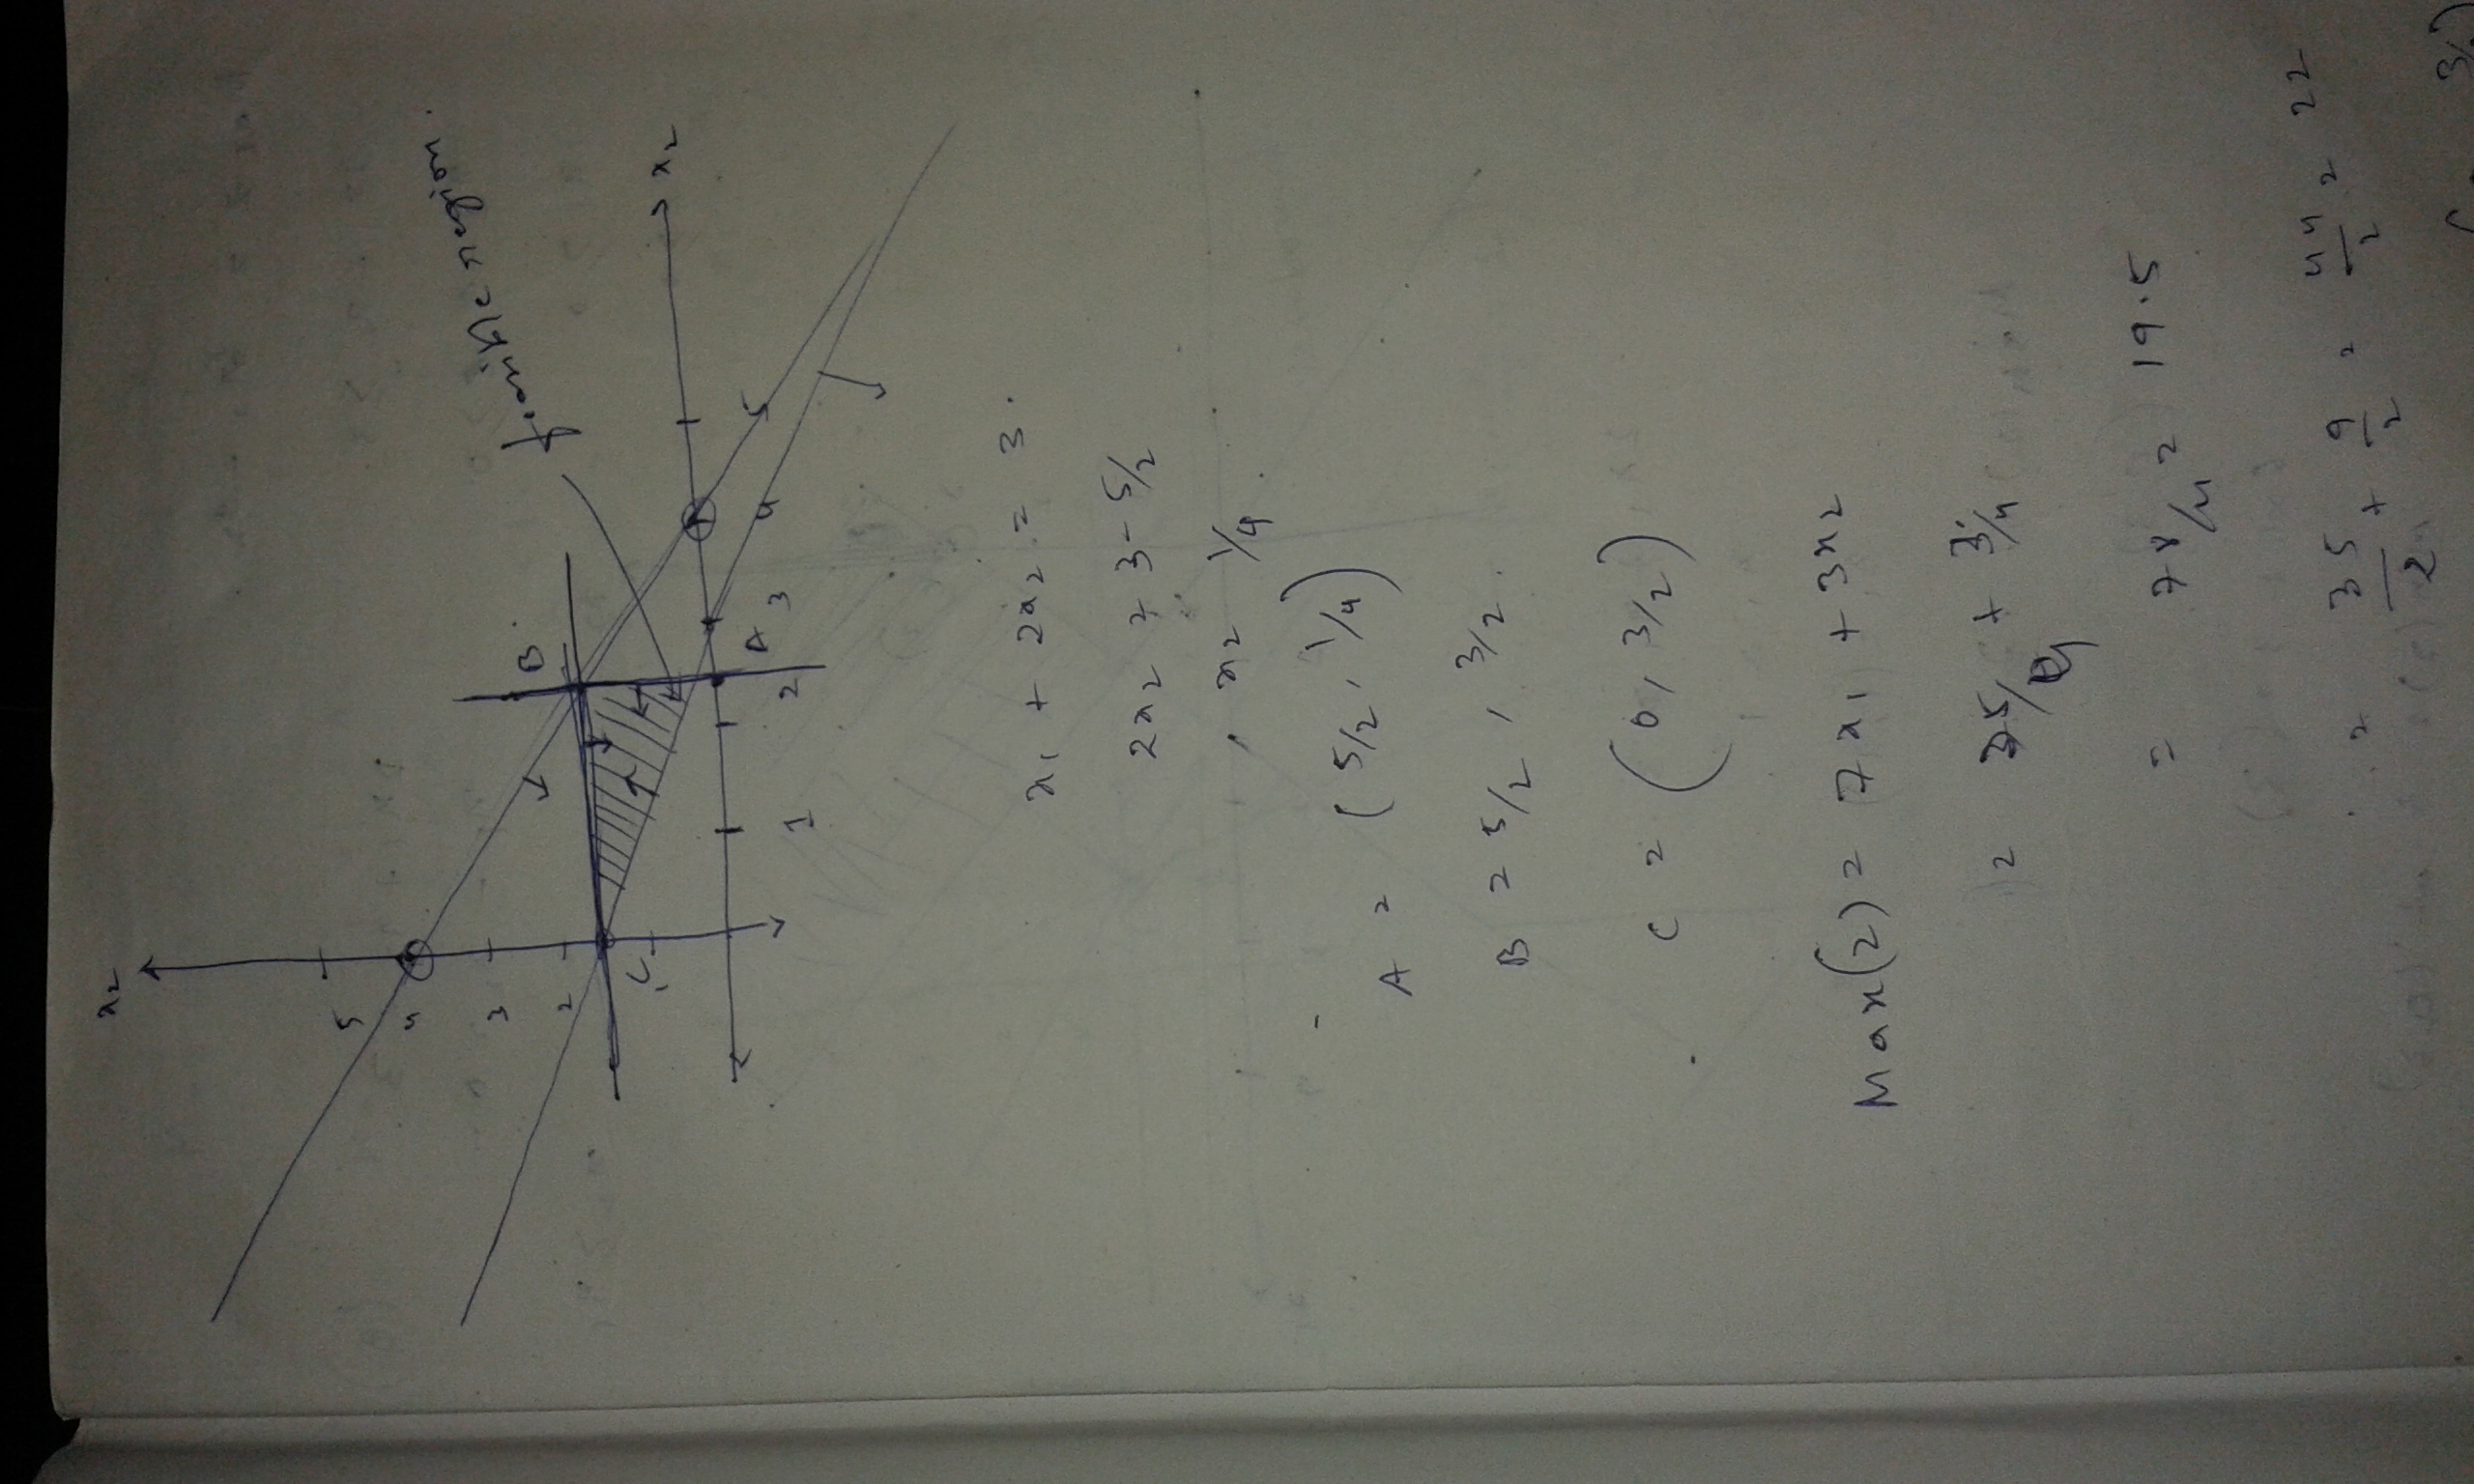 x2
5
4
3
2
1
C
B
feasible region.
x2
A
1 2 3 4 5
x1 + 2x2 = 3.
2x2 = 3 - 5/2
x2 1/4.
A = (5/2, 1/4)
B = 5/2, 3/2.
C = (0, 3/2)
Max(z) = 7x1 + 3x2
= 35/2 + 3/4
= 78/4 = 19.5
= 35/2 + 9/2 = 44/2 = 22